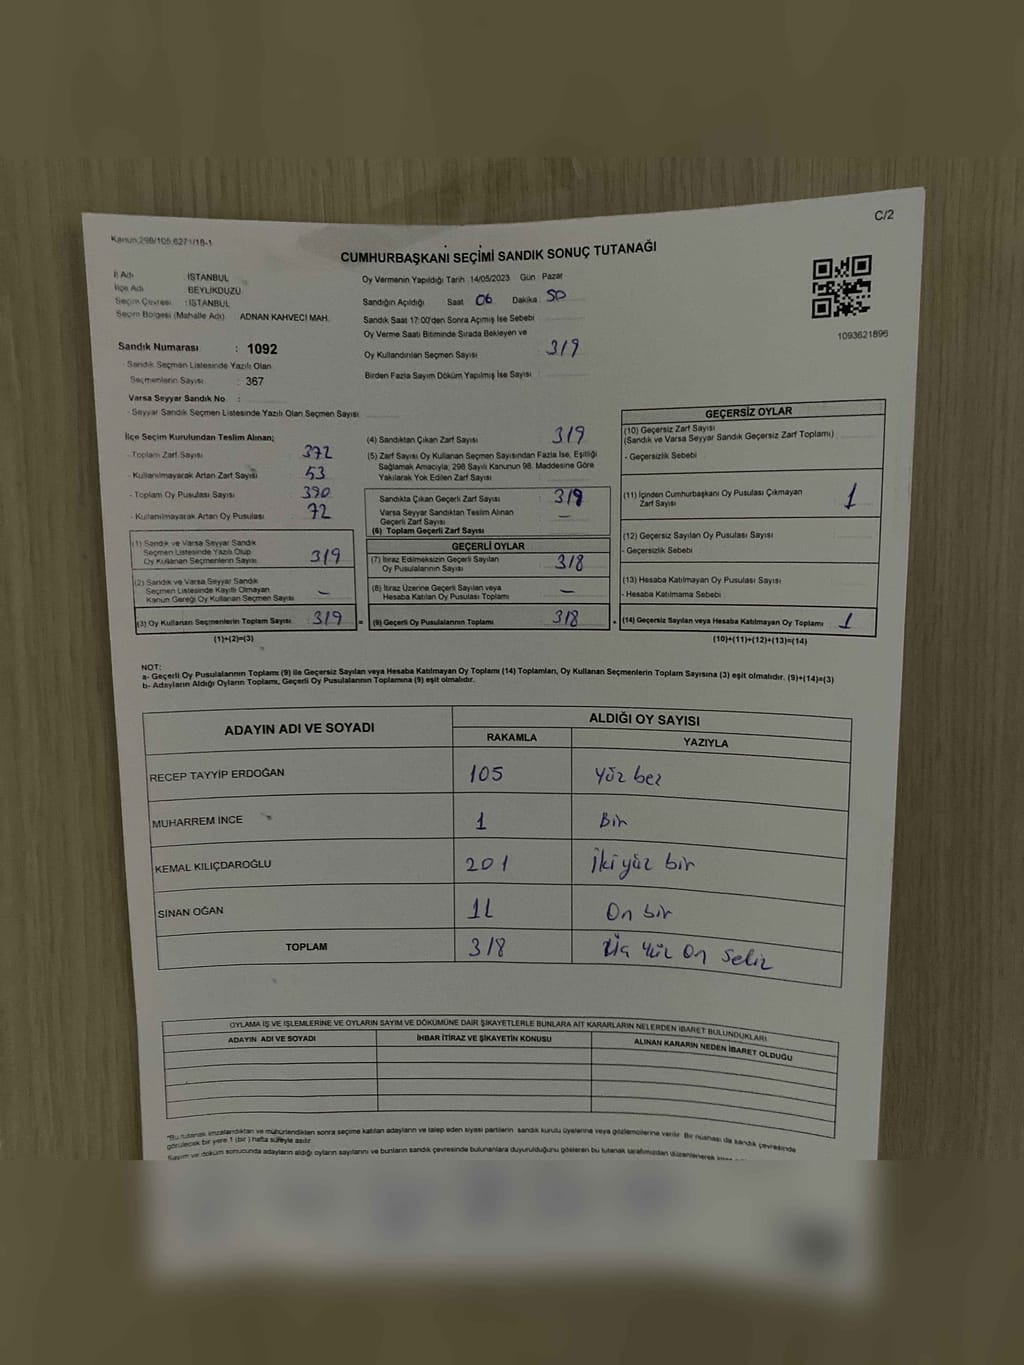 C/2
Kanun:298/105,6271/18-1
CUMHURBAŞKANI SEÇİMİ SANDIK SONUÇ TUTANAĞI
İl Adı : İSTANBUL
İlçe Adı : BEYLİKDÜZÜ
Seçim Çevresi : İSTANBUL
Seçim Bölgesi (Mahalle Adı) ADNAN KAHVECİ MAH.
Sandık Numarası : 1092
- Sandık Seçmen Listesinde Yazılı Olan
Seçmenlerin Sayısı : 367
Varsa Seyyar Sandık No :
- Seyyar Sandık Seçmen Listesinde Yazılı Olan Seçmen Sayısı
Oy Vermenin Yapıldığı Tarih 14/05/2023 Gün : Pazar
Sandığın Açıldığı Saat 06 Dakika : 50
Sandık Saat 17:00'den Sonra Açmış İse Sebebi
Oy Verme Saati Bitiminde Sırada Bekleyen ve
Oy Kullandırılan Seçmen Sayısı 319
Birden Fazla Sayım Döküm Yapılmış İse Sayısı :
1093621896
İlçe Seçim Kurulundan Teslim Alınan;
- Toplam Zarf Sayısı 372
- Kullanılmayarak Artan Zarf Sayısı 53
- Toplam Oy Pusulası Sayısı 390
- Kullanılmayarak Artan Oy Pusulası 72
(1) Sandık ve Varsa Seyyar Sandık
Seçmen Listesinde Yazılı Olup
Oy Kullanan Seçmenlerin Sayısı 319
(2) Sandık ve Varsa Seyyar Sandık
Seçmen Listesinde Kayıtlı Olmayan
Kanun Gereği Oy Kullanan Seçmen Sayısı –
(3) Oy Kullanan Seçmenlerin Toplam Sayısı 319 =
(1)+(2)=(3)
(4) Sandıktan Çıkan Zarf Sayısı 319
(5) Zarf Sayısı Oy Kullanan Seçmen Sayısından Fazla İse, Eşitliği
Sağlamak Amacıyla; 298 Sayılı Kanunun 98. Maddesine Göre
Yakılarak Yok Edilen Zarf Sayısı
Sandıkta Çıkan Geçerli Zarf Sayısı 319
Varsa Seyyar Sandıktan Teslim Alınan
Geçerli Zarf Sayısı –
(6) Toplam Geçerli Zarf Sayısı
GEÇERLİ OYLAR
(7) İtiraz Edilmeksizin Geçerli Sayılan
Oy Pusulalarının Sayısı 318
(8) İtiraz Üzerine Geçerli Sayılan veya
Hesaba Katılan Oy Pusulası Toplamı –
(9) Geçerli Oy Pusulalarının Toplamı 318 +
GEÇERSİZ OYLAR
(10) Geçersiz Zarf Sayısı
(Sandık ve Varsa Seyyar Sandık Geçersiz Zarf Toplamı)
- Geçersizlik Sebebi
(11) İçinden Cumhurbaşkanı Oy Pusulası Çıkmayan
Zarf Sayısı 1
(12) Geçersiz Sayılan Oy Pusulası Sayısı
- Geçersizlik Sebebi
(13) Hesaba Katılmayan Oy Pusulası Sayısı
- Hesaba Katılmama Sebebi
(14) Geçersiz Sayılan veya Hesaba Katılmayan Oy Toplamı 1
(10)+(11)+(12)+(13)=(14)
NOT:
a- Geçerli Oy Pusulalarının Toplamı (9) ile Geçersiz Sayılan veya Hesaba Katılmayan Oy Toplamı (14) Toplamları, Oy Kullanan Seçmenlerin Toplam Sayısına (3) eşit olmalıdır. (9)+(14)=(3)
b- Adayların Aldığı Oyların Toplamı, Geçerli Oy Pusulalarının Toplamına (9) eşit olmalıdır.
ADAYIN ADI VE SOYADI ALDIĞI OY SAYISI
RAKAMLA YAZIYLA
RECEP TAYYİP ERDOĞAN 105 Yüz beş
MUHARREM İNCE 1 Bir
KEMAL KILIÇDAROĞLU 201 İki yüz bir
SİNAN OĞAN 11 On bir
TOPLAM 318 Üç Yüz On Sekiz
OYLAMA İŞ VE İŞLEMLERİNE VE OYLARIN SAYIM VE DÖKÜMÜNE DAİR ŞİKAYETLERLE BUNLARA AİT KARARLARIN NELERDEN İBARET BULUNDUKLARI
ADAYIN ADI VE SOYADI İHBAR İTİRAZ VE ŞİKAYETİN KONUSU ALINAN KARARIN NEDEN İBARET OLDUĞU
*Bu tutanak imzalandıktan ve mühürlendikten sonra seçime katılan adayların ve talep eden siyasi partilerin sandık kurulu üyelerine veya gözlemcilerine verilir. Bir nüshası da sandık çevresinde
görülecek bir yere 1 (bir) hafta süreyle asılır.
Sayım ve döküm sonucunda adayların aldığı oyların sayılarını ve bunların sandık çevresinde bulunanlara duyurulduğunu gösteren bu tutanak tarafımızdan düzenlenerek